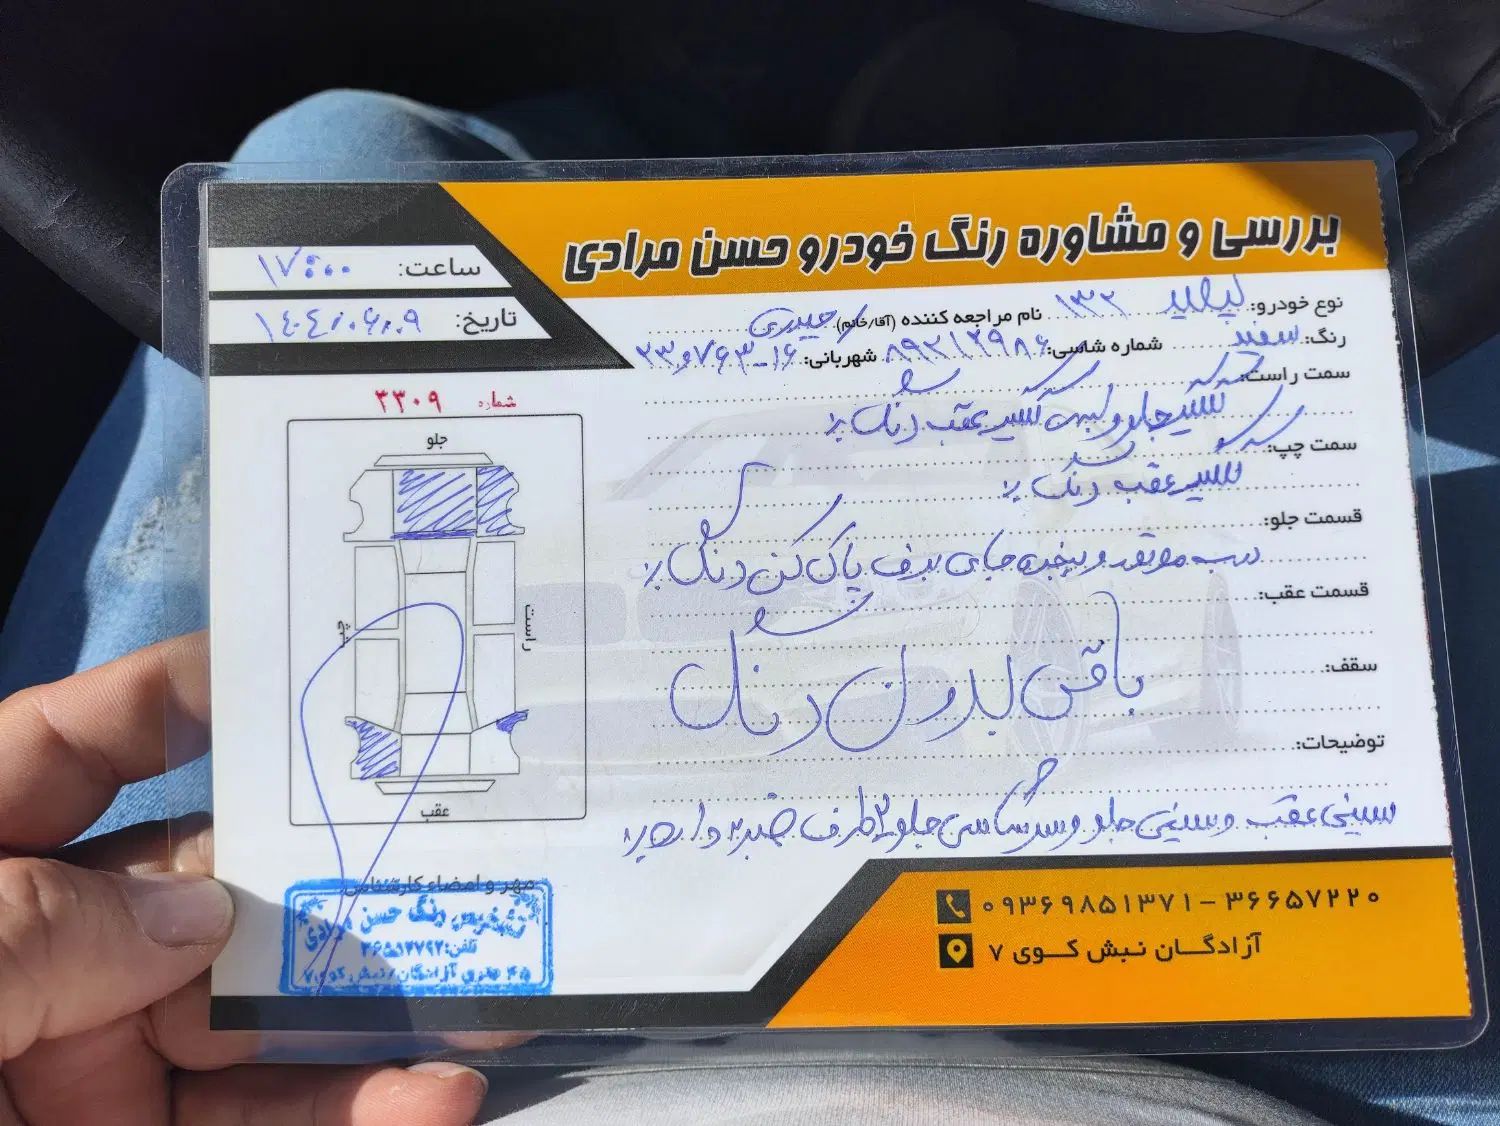 بررسی و مشاوره رنگ خودرو حسن مرادی
ساعت: ۱۷:۰۰
تاریخ: ۱۴۰۴/۰۶/۰۹
نوع خودرو: ۱۳۲ نام مراجعه کننده (آقا/خانم) حیدری
رنگ: سفید شماره شاسی: ۸۹۲۱۲۹۸۶ شهربانی: ۱۶-۷۶۳و۲۳
سمت راست:
گلگیر جلو و گلگیر عقب رنگ
سمت چپ:
گلگیر عقب رنگ
قسمت جلو:
درب موتور و پنجره جای برف پاک کن رنگ
قسمت عقب:
سقف:
باقی بدون رنگ
توضیحات:
سینی عقب و سینی جلو و سرشاسی جلو ۲ طرف ضربه دارد
شماره ۳۳۰۹
جلو
چپ
راست
عقب
مهر و امضاء کارشناس:
تشخیص رنگ حسن مرادی
تلفن: ۳۶۵۱۲۷۹۲
۴۵ متری آزادگان/نبش کوی۷
۰۹۳۶۹۸۵۱۳۷۱-۳۶۶۵۷۲۲۰
آزادگان نبش کوی ۷